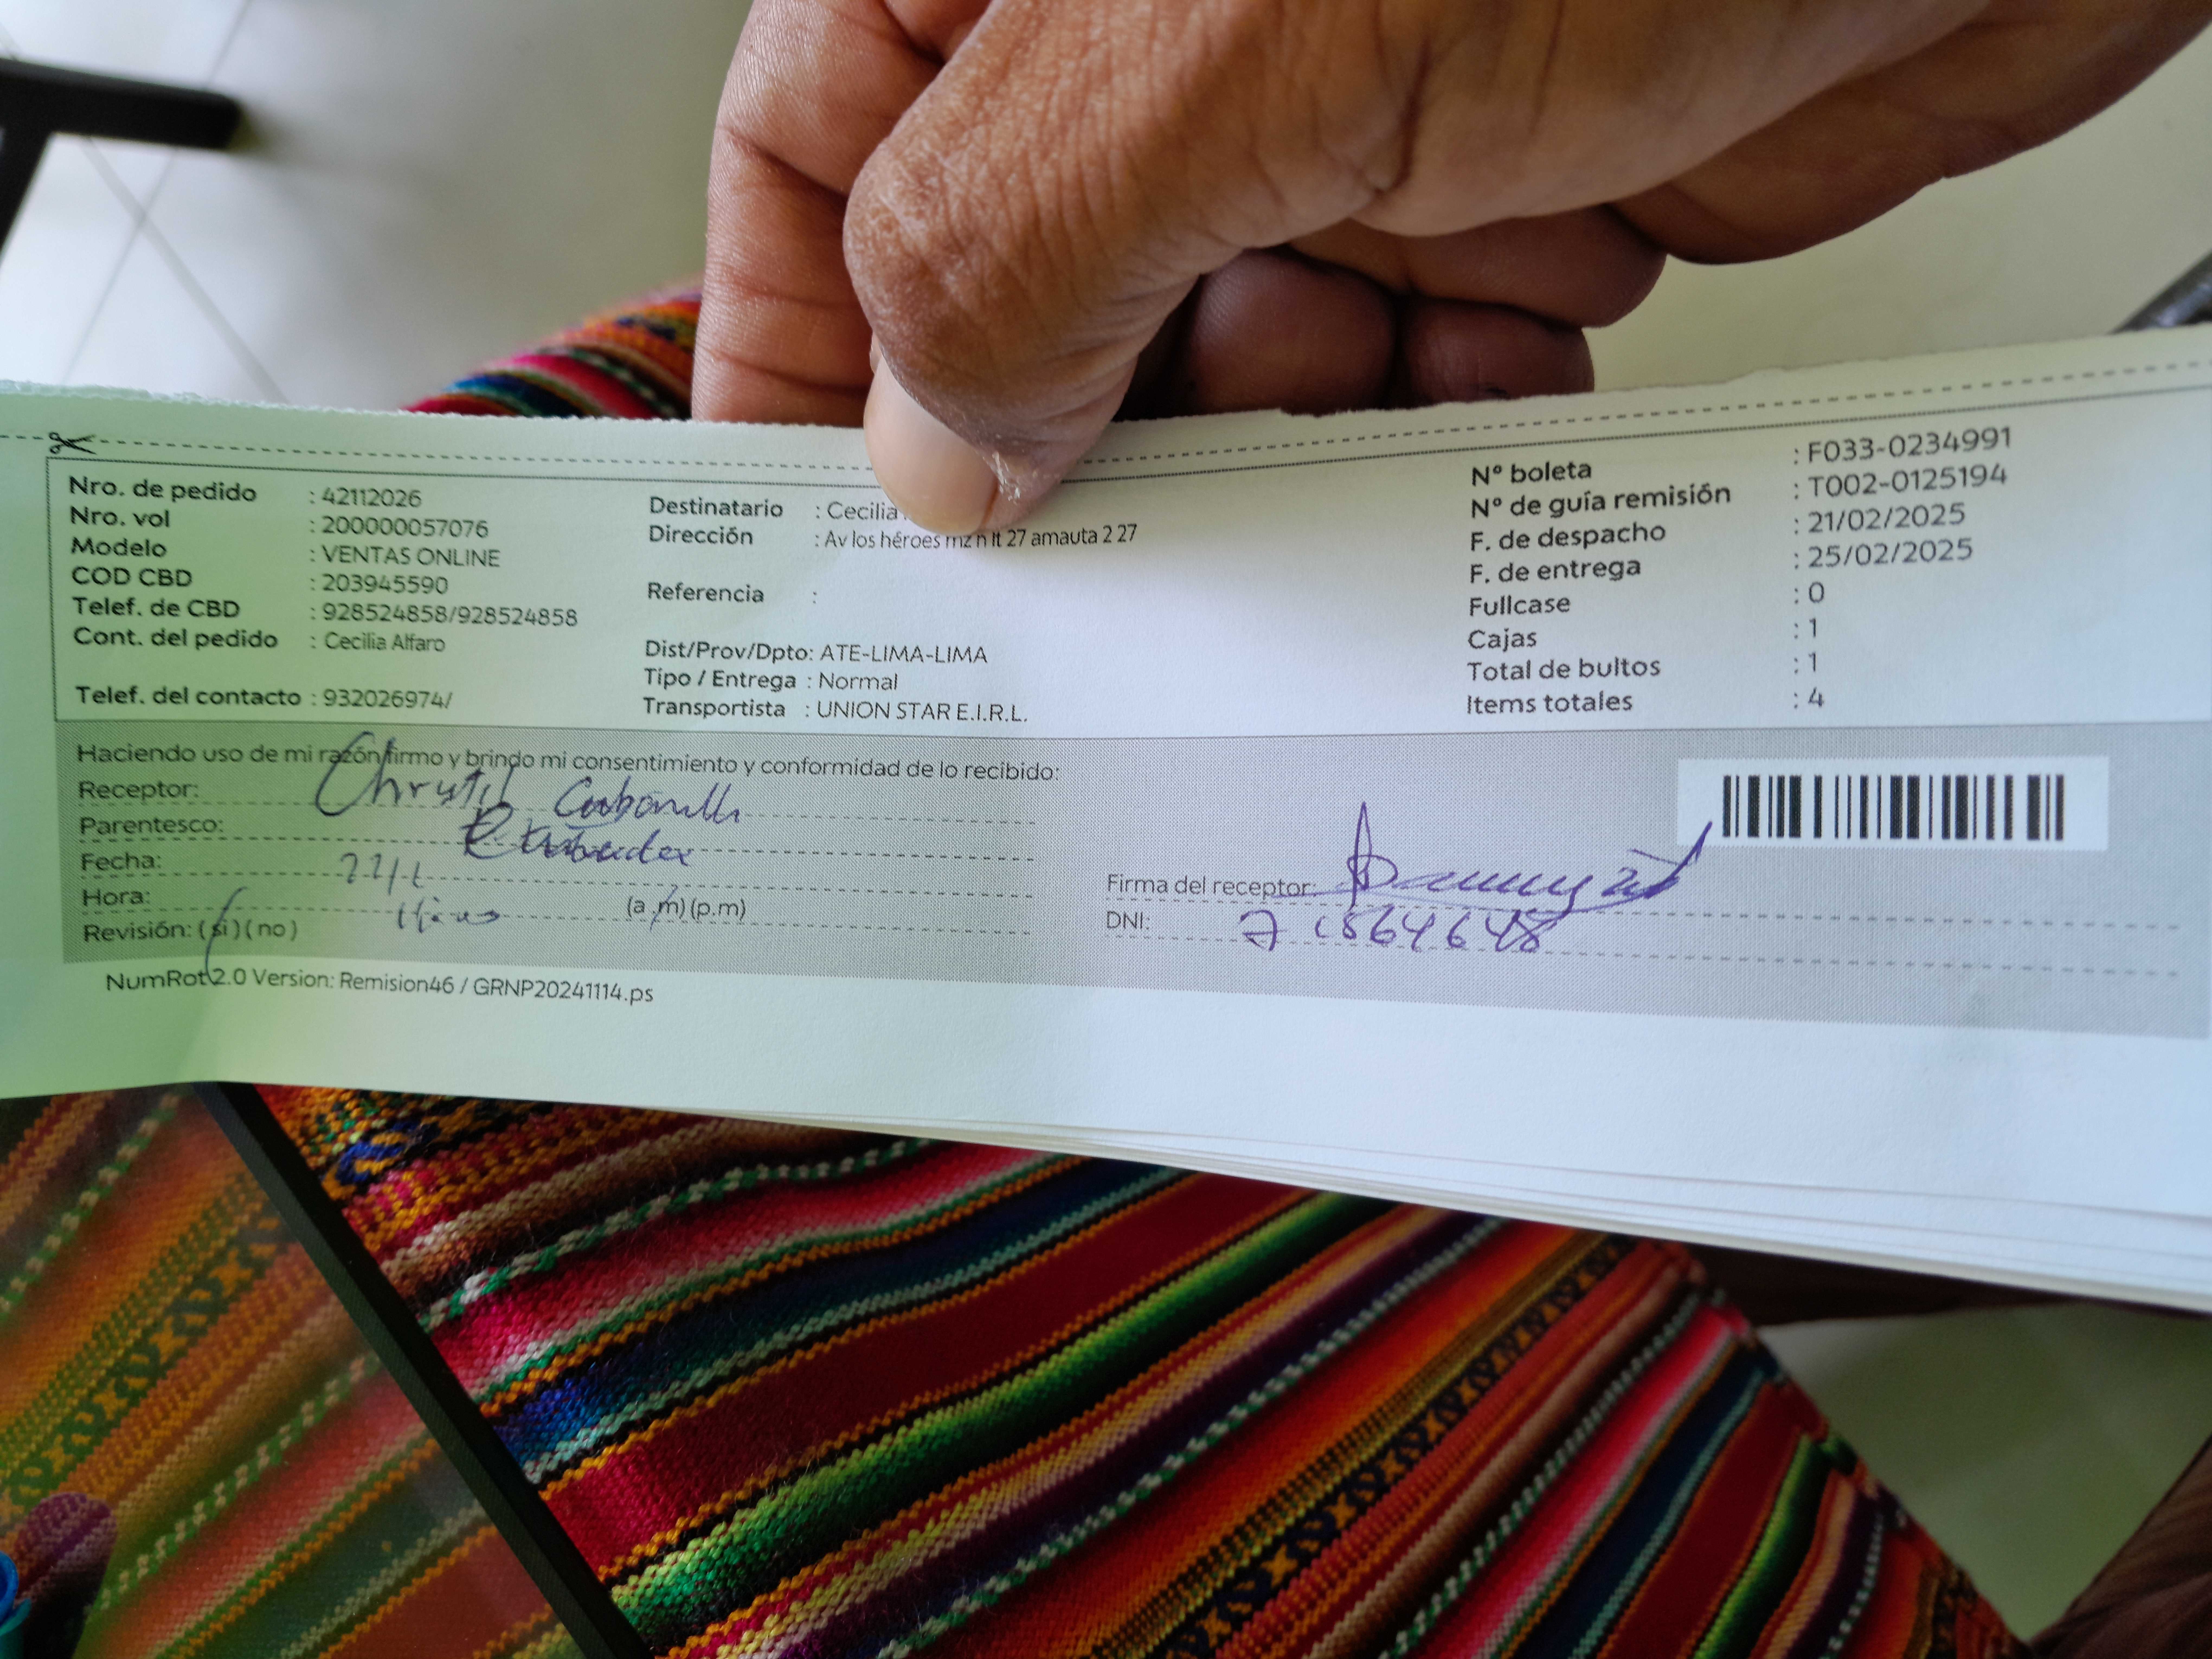 Nro. de pedido : 42112026
Nro. vol : 200000057076
Modelo : VENTAS ONLINE
COD CBD : 203945590
Telef. de CBD : 928524858/928524858
Cont. del pedido : Cecilia Alfaro
Telef. del contacto : 932026974/
Destinatario : Cecilia
Dirección : Av los héroes mz n lt 27 amauta 2 27
Referencia :
Dist/Prov/Dpto: ATE-LIMA-LIMA
Tipo / Entrega : Normal
Transportista : UNION STAR E.I.R.L.
Nº boleta : F033-0234991
Nº de guía remisión : T002-0125194
F. de despacho : 21/02/2025
F. de entrega : 25/02/2025
Fullcase : 0
Cajas : 1
Total de bultos : 1
Items totales : 4
Haciendo uso de mi razón firmo y brindo mi consentimiento y conformidad de lo recibido:
Receptor:
Parentesco:
Fecha:
Hora: (a.m) (p.m)
Revisión: (si) (no)
Firma del receptor:
DNI:
NumRot 2.0 Version: Remision46 / GRNP20241114.ps